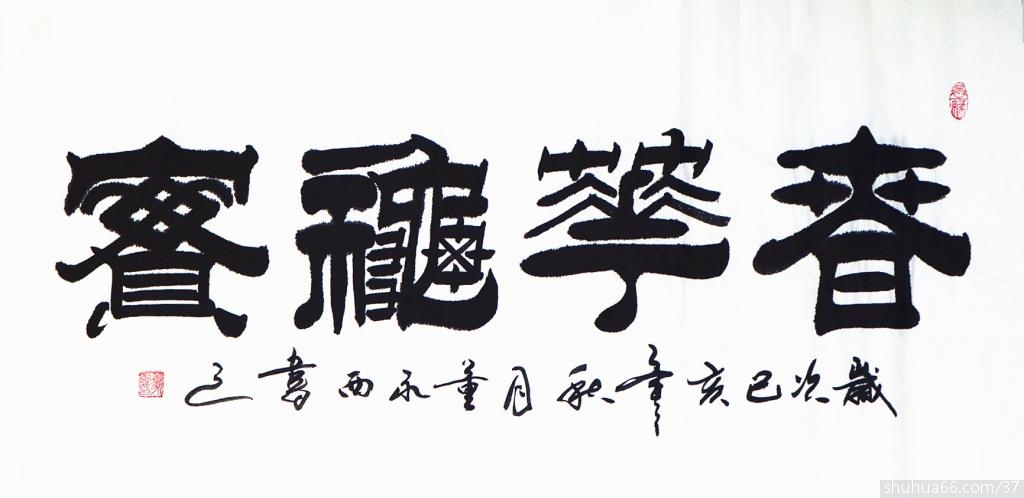 春華龝實
歲次己亥年秋月董永西書之
shuhua66.com/37